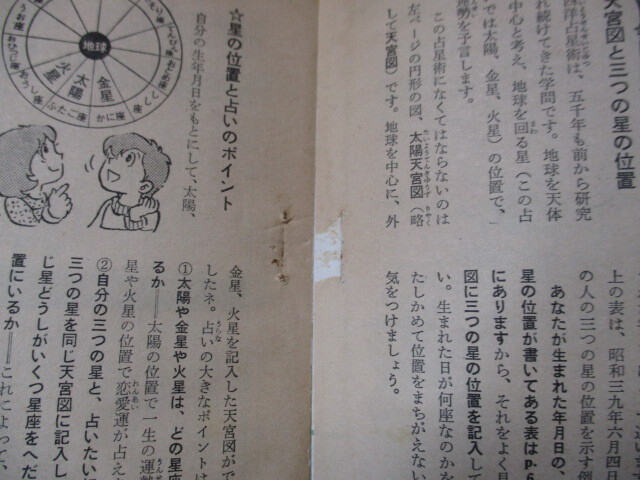 天宮図と三つの星の位置
西洋占星術は、五千年も前から研究
され続けてきた学問です。地球を天体
の中心と考え、地球を回る星(この占
いでは太陽、金星、火星)の位置で、
運勢を予言します。
この占星術になくてはならないのは
左ページの円形の図、太陽天宮図(略
して天宮図)です。地球を中心に、外
上の表は、昭和三九年六月四日
の人の三つの星の位置を示す例
あなたが生まれた年月日の、
星の位置が書いてある表はp.6
にありますから、それをよく見
図に三つの星の位置を記入して
い。生まれた日が何座なのかを
たしかめて位置をまちがえない
気をつけましょう。
地球
金星
太陽
火星
てんびん座
おとめ座
しし座
かに座
ふたご座
おうし座
おひつじ座
うお座
☆星の位置と占いのポイント
自分の生年月日をもとにして、太陽、
金星、火星を記入した天宮図がで
したネ。占いの大きなポイントは
①太陽や金星や火星は、どの星座
るか——太陽の位置で一生の運勢
星や火星の位置で恋愛運が占え
②自分の三つの星と、占いたい
三つの星を同じ天宮図に記入し
じ星どうしがいくつ星座をへだ
置にいるか——これによって、